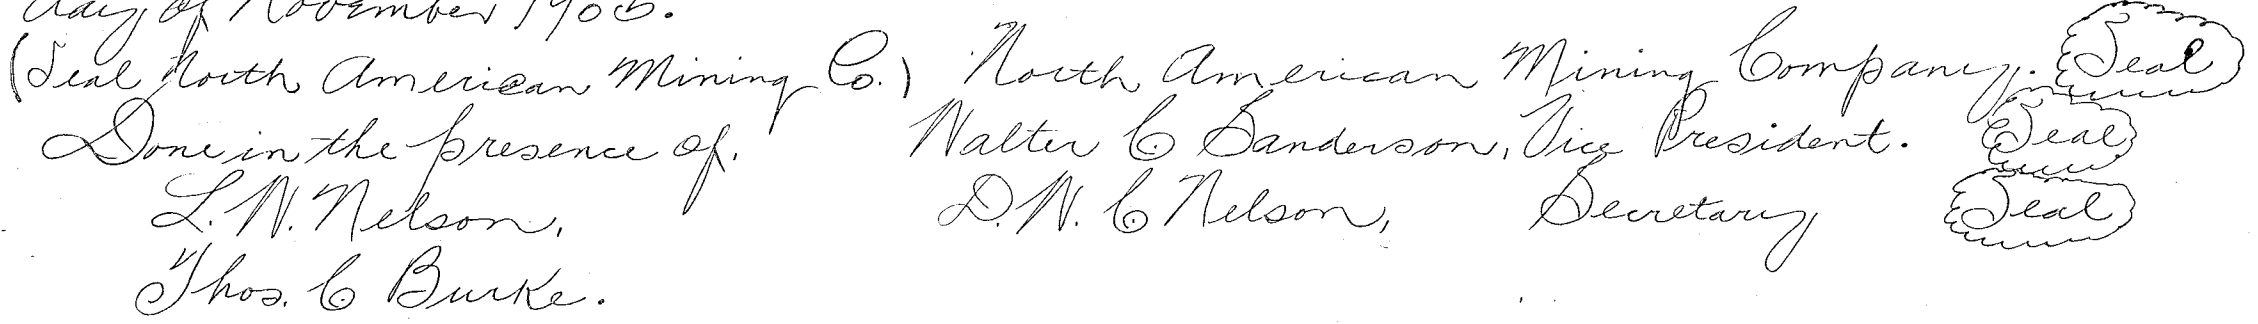 day of November 1905.
(Seal North American Mining Co.) North American Mining Company. Seal
Done in the presence of. Walter C Sanderson, Vice President. Seal
L. W. Nelson, D. W. C Nelson, Secretary Seal
Thos. C Burke.